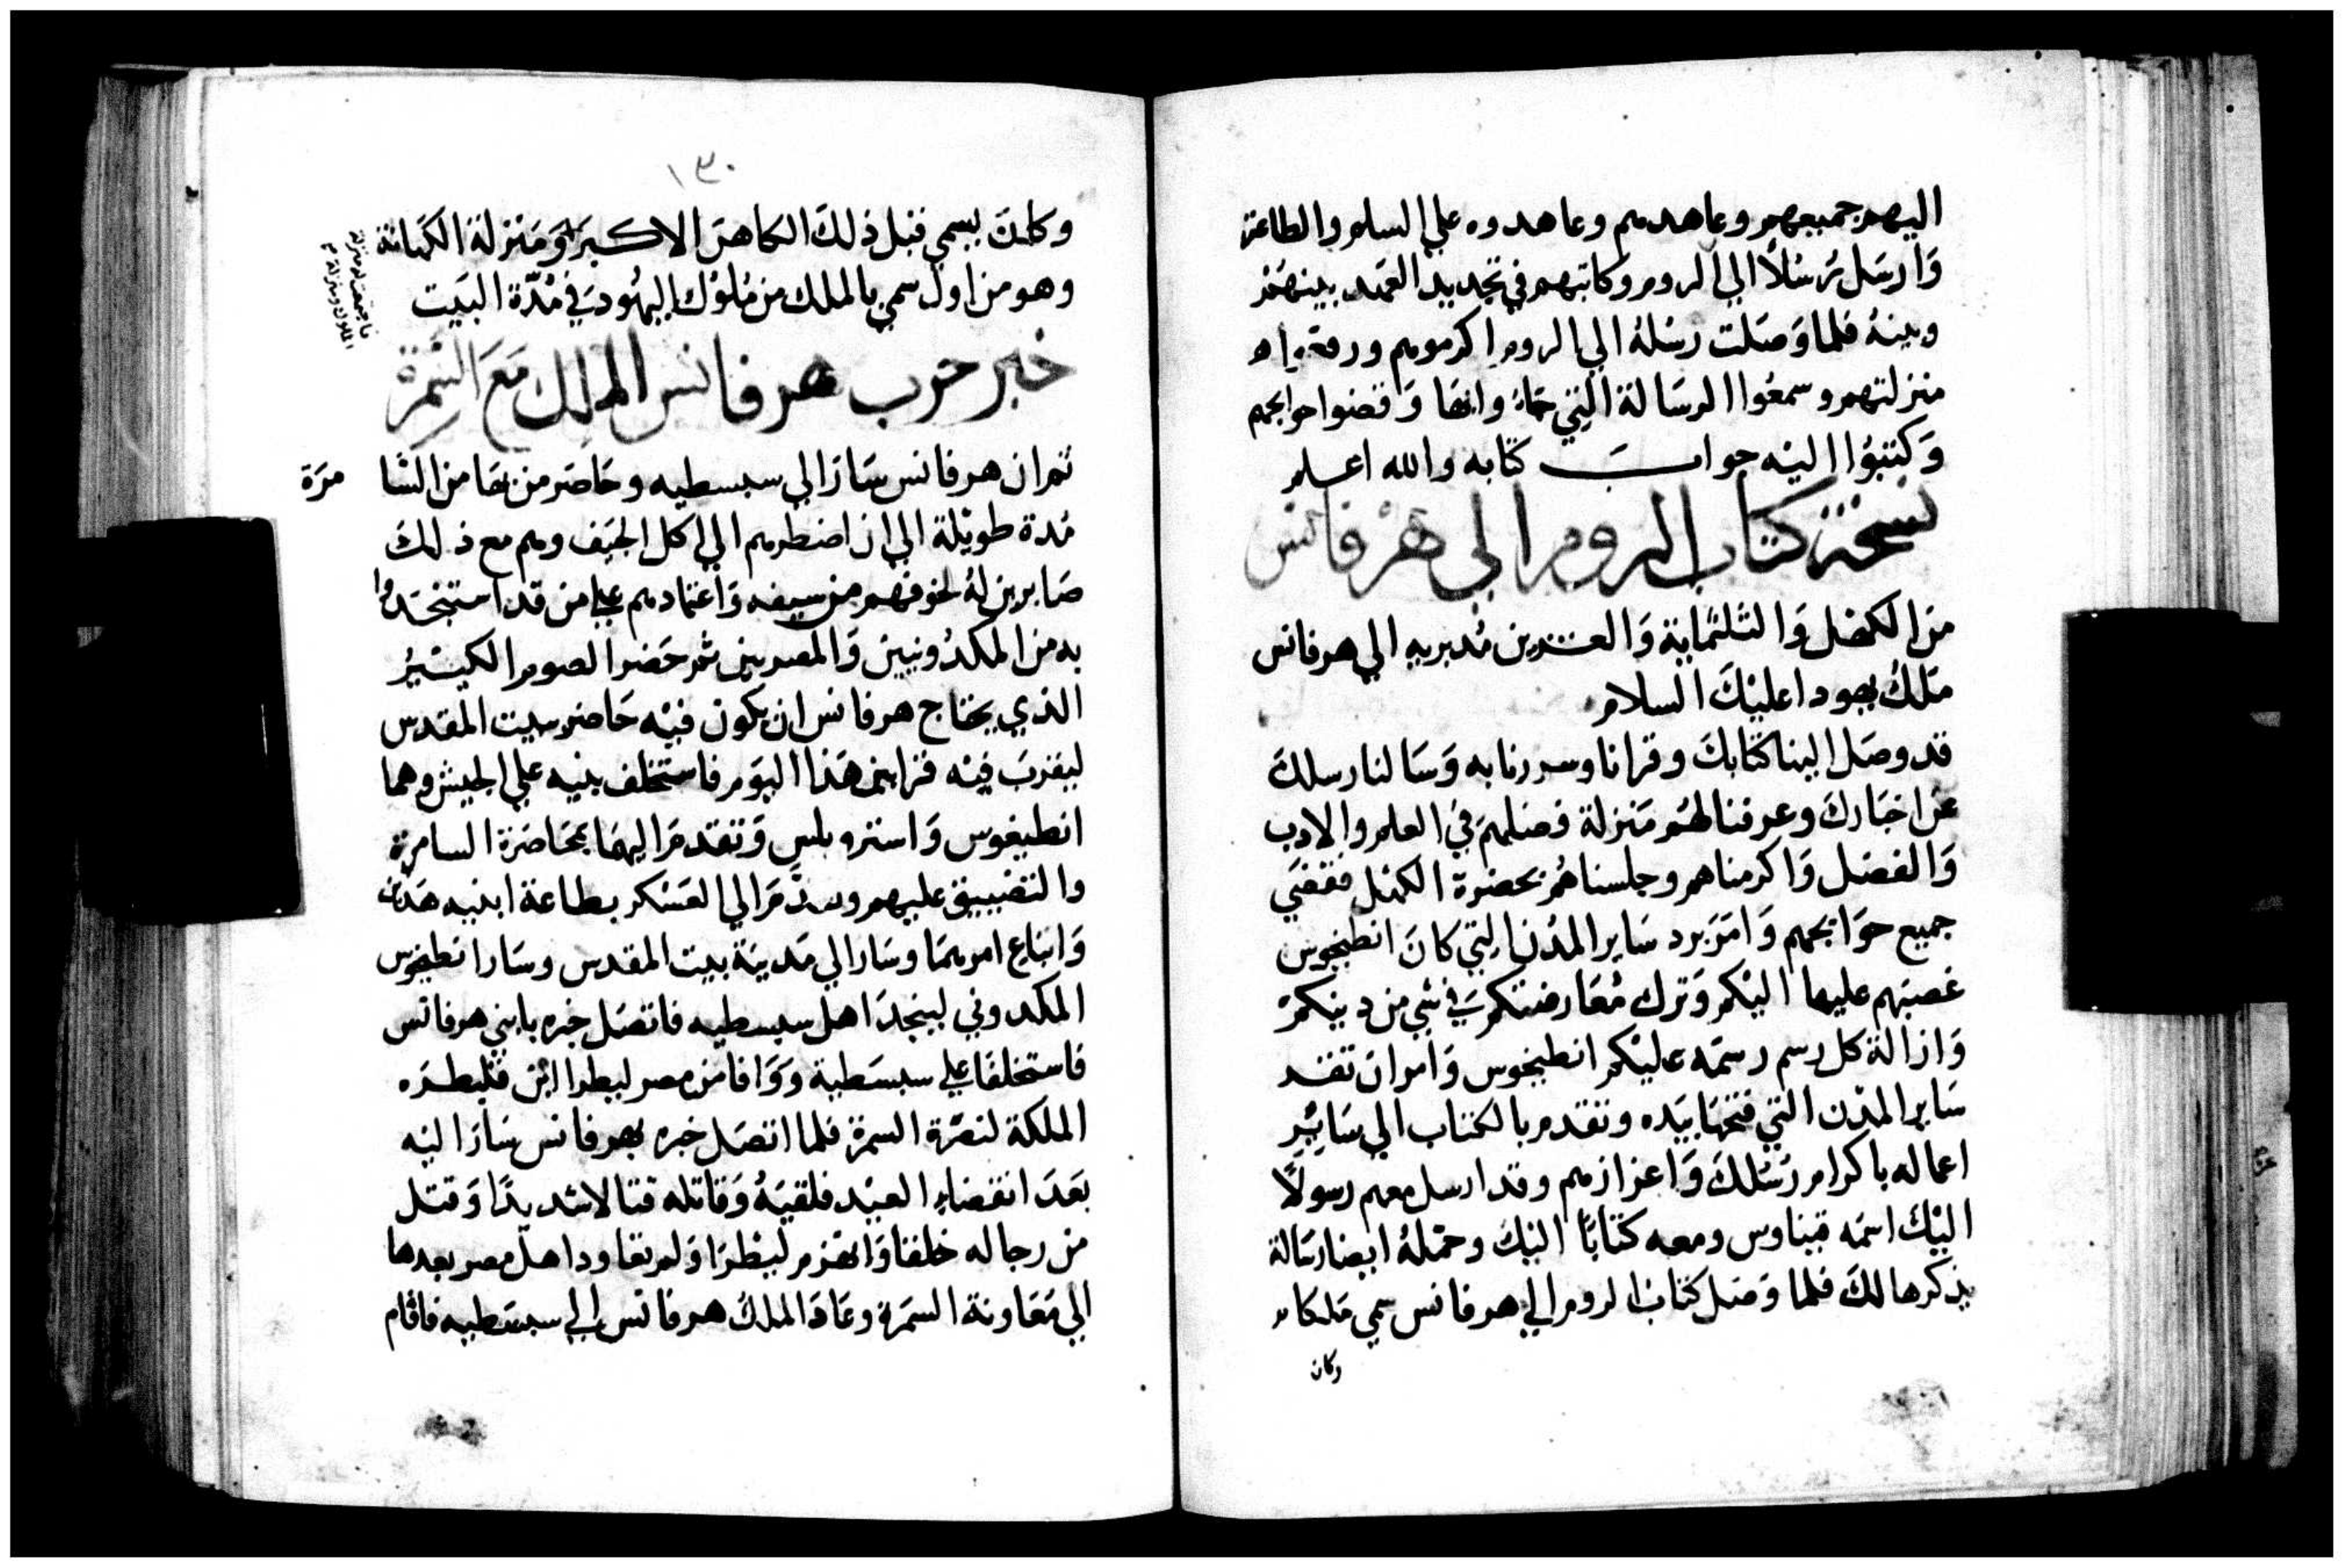 اليهم جميعهم وعاهدهم وعاهدوه علي السلم والطاعة
وَارسَل رُسُلًا الي الروم وكاتبهم في تجديد العَهد بينهُم
وبينهُ فلما وَصَلت رسُلهُ الي الروم اكرموهم ورفعوا
منزلتهم وسمعُوا الرسَالة التي جاءُوا بهَا وَقضوا حوايجهم
وَكتبُوا اليْه جوابَ كتابه والله اعلم
نسخة كتاب الروم الي هرقانس
منَ الكهْل وَالثلثماية وَالعشرين مُدبريه الي هرقانس
مَلكُ يهودا عليْكَ السلام
قد وصَل الينا كتابكَ وقراناه وسررنا به وَسَالنا رسلكَ
عن اخبَاركَ وعرفنا لهُم مَنزلة فضلهمَ في العلم والادب
وَالفضل وَاكرمناهم وجلسناهُم بحضرة الكهْل فقضي
جميع حوَايجهم وَامَرَ برد سَاير المدُن التي كانَ انطيخوس
غصبَهم عليها اليْكم وَترك مُعَارضتكم في شي من دينكم
وَازالة كل رسم رسمَه عليْكم انطيخوس وَامر ان تفتد
سَاير المدُن التي فتحهَا بيَده وتقدم بالكتاب الي سَايِر
اعماله باكرام رُسُلكَ وَاعزازهم وقد ارسل معهم رسولًا
اليْكَ اسمَه قيناوس ومعه كتابًا اليْكَ وحمّلهُ ايضا رسَالة
يذكرها لكَ فلما وَصَل كتابُ الروم الي هرقانس سمي مَلكا
وكان
١٣٠
وكانَ يسمي قبل ذلكَ الكاهنَ الاكبر وَمَنزلة الكهَانة
فاجتمعت له منزلة
الملك ومنزلة
وهو من اول سمي بالملك من مُلوُك اليهُود في مُدّة البيَت
خبر حرب هرقانس الملك مَعَ السَّمرَة
ثم ان هرقانس سَارَ الي سبسطيه وحَاصَر من بهَا من السَّا مرَة
مُدة طويْلة الي ان اضطرهم الي اكل الجيَف وهم مع ذلكَ
صَابرين لهُ لخوفهم من سيفه وَاعتمادهم علي من قد استنجَدُوا
به من المكدُونيينَ وَالمصريين ثم حَضر الصوم الكبيْر
الذي يحتاج هرقانس ان يكون فيْه حَاضر ببيت المقدس
ليقربَ فيْه قرابين هَذا اليوَم فاستخلف بنيه علي الجيش وهما
انطيغوس وَاسترو بلس وَتقدمَ اليهمَا بمحَاصَرة السامرة
والتضييق عليهم وتقدَّمَ الي العَسْكر بطاعة ابنيه هَذين
وَاتباع امرهمَا وسَار الي مَدينَة بيت المقدس وسَار انطيخوس
المكدوني لينجدَ اهل سبسطيه فاتصَل خبره بابني هرقانس
فاستخلفا علي سبسَطية وَوَافا من مصر ليطرا ابْن قليطرَه
الملكة لنصْرَة السمرة فلما اتصَل خبره بهرقانس سَارَ اليْه
بعَدَ انقضاء العيْد فلقيَهُ وَقاتله قتالا شديدًا وَقتل
من رجاله خلقا وَانهزم ليطرَا وَلم تعاود اهل مصر بعدها
الي مَعَاونة السمَرة وعَادَ الملكُ هرقانس الي سبسَطيه فاقام